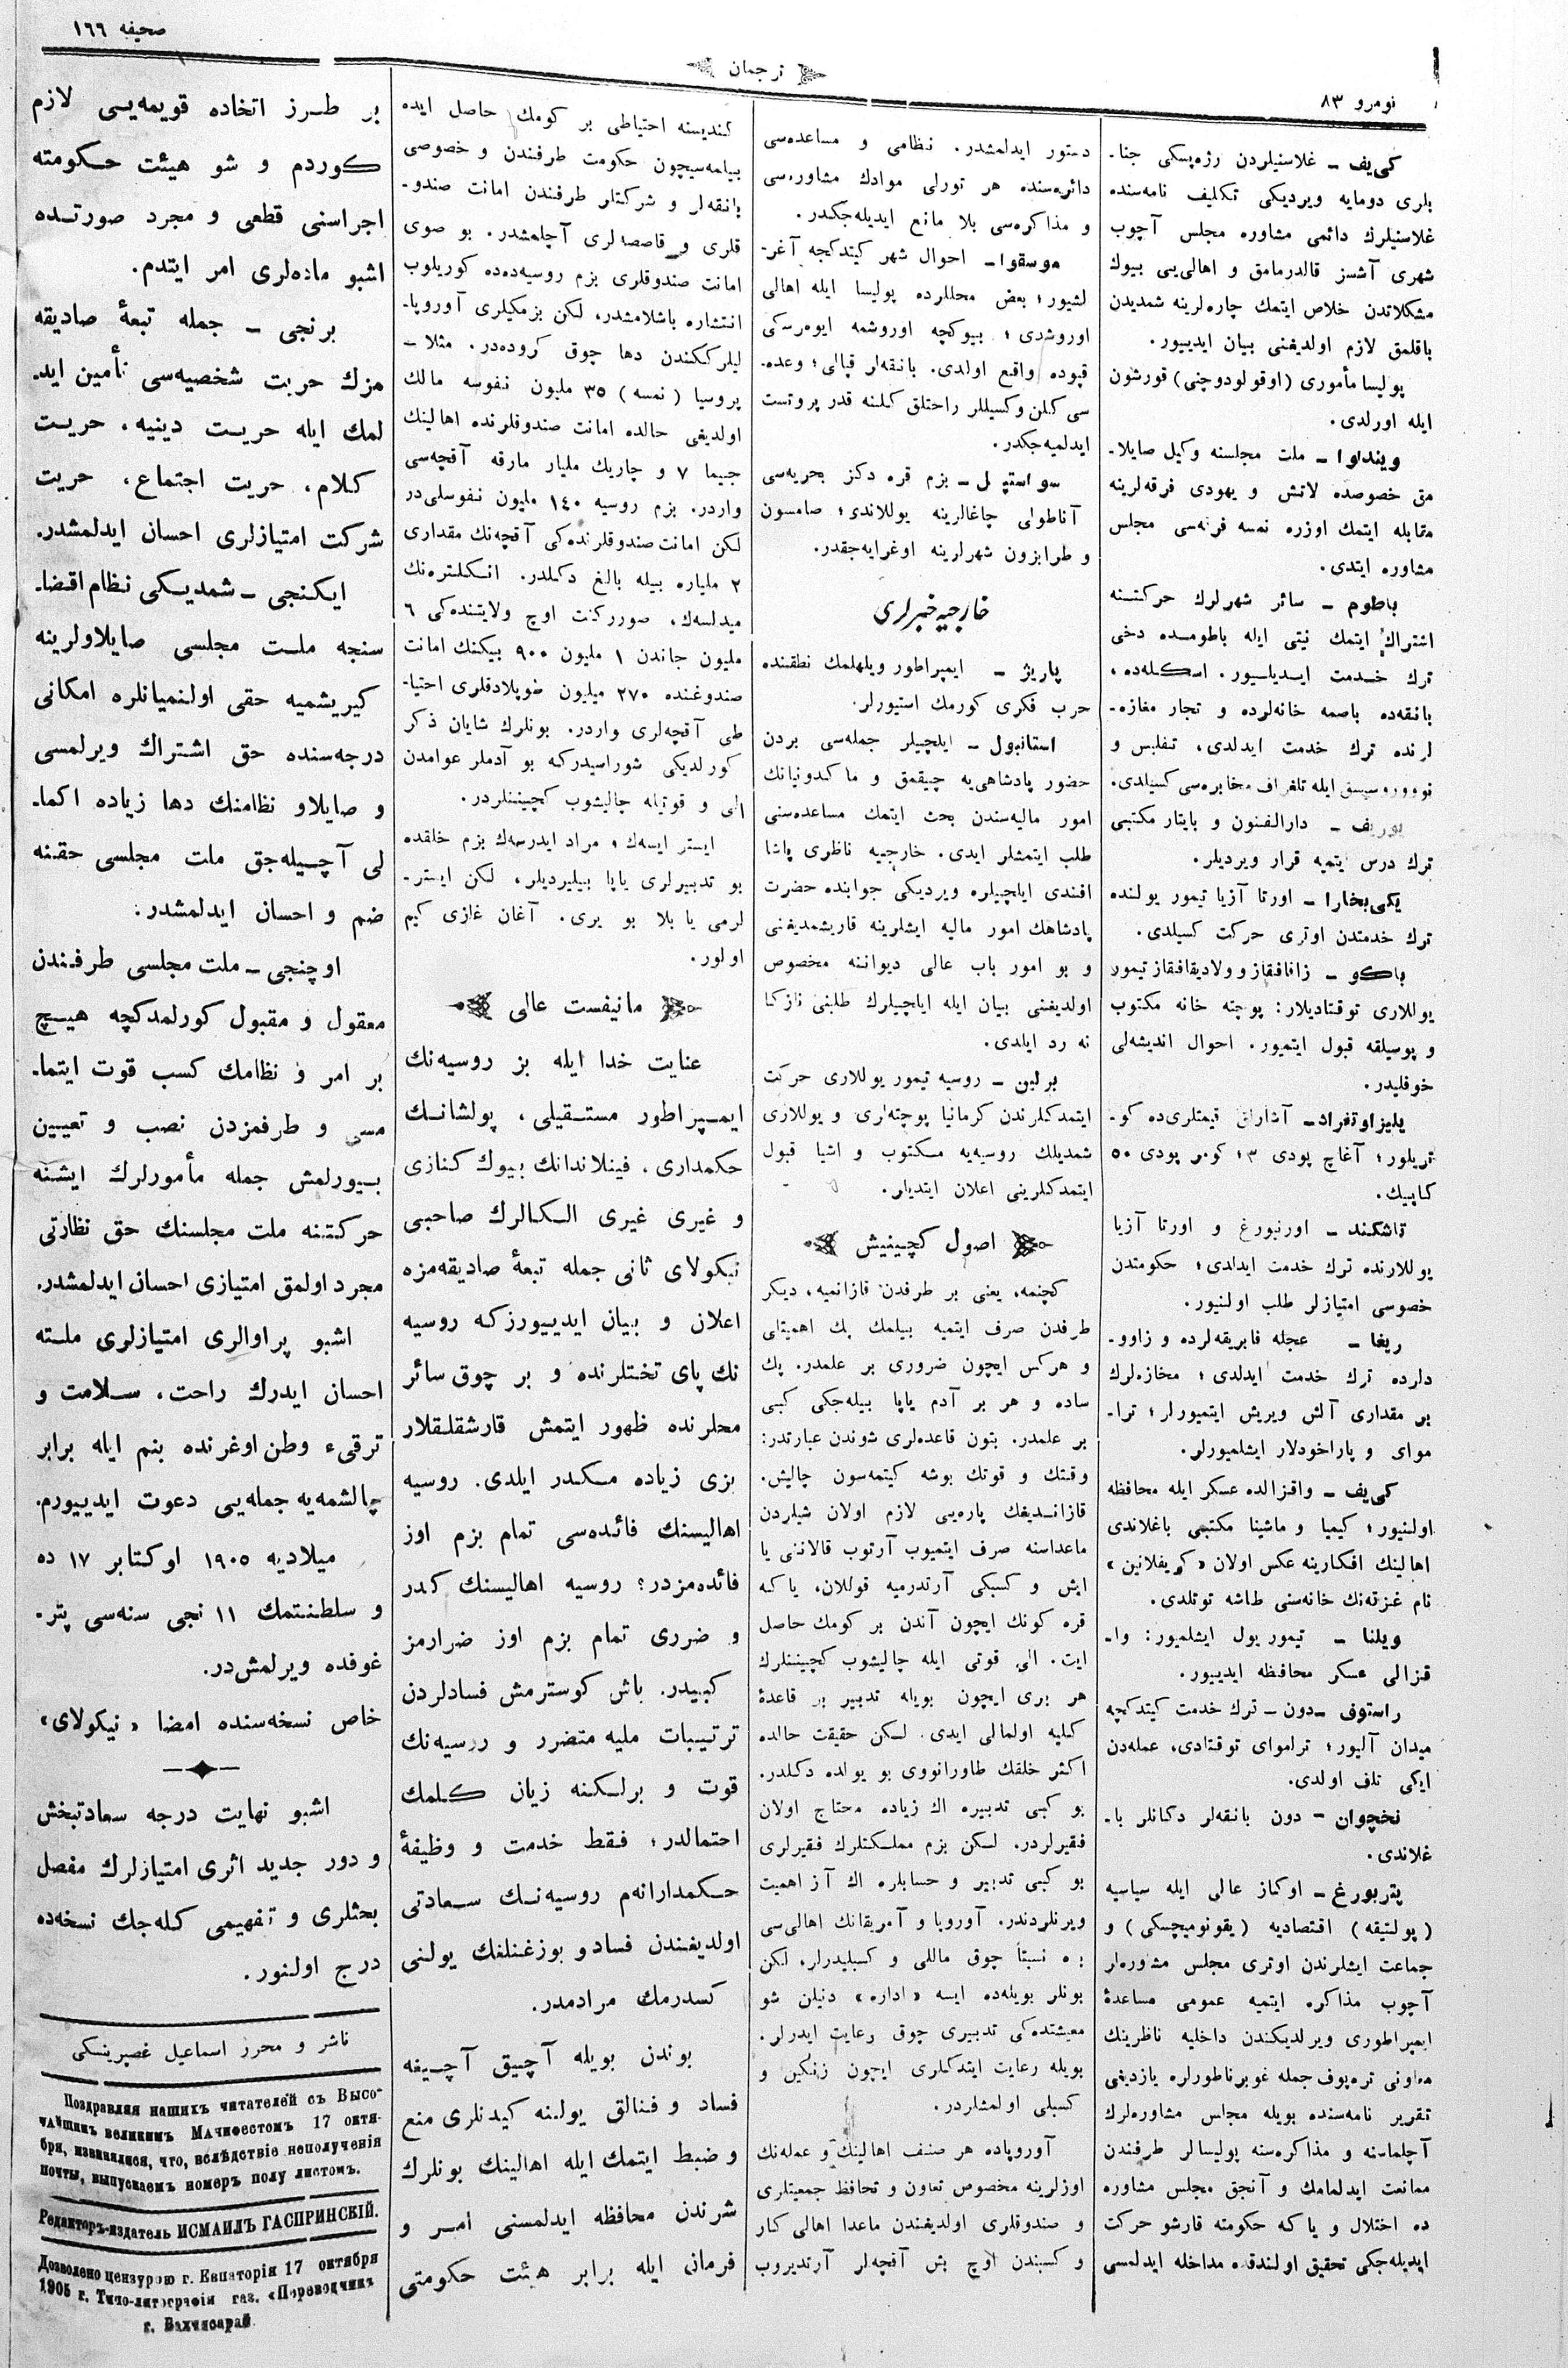 صحیفه ١٦٦
ترجمان
نومرو ٨٣
كی‌یف ـ غلاسنیلردن رژه‌پسكی جنا-
بلری دومایه ویردیكی تكلیف نامه‌سنده
غلاسنیلرك دائمی مشاوره مجلس آچوب
شهری آشسز قالدرمامق و اهالی‌یی بیوك
مشكلاتدن خلاص ایتمك چاره‌لرینه شمدیدن
باقلمق لازم اولدیغنی بیان ایدییور.
پولیسا مأموری (اوقولودوچنی) قورشون
ایله اورلدی.
وینداوا ـ ملت مجلسنه وكیل صایلا-
مق خصوصده لاتش و یهودی فرقه‌لرینه
متقابله ایتمك اوزره نمسه فرقه‌سی مجلس
مشاوره ایتدی.
باطوم ـ سائر شهرلرك حركتنه
اشتراك ایتمك نیتی ایله باطومده دخی
ترك خدمت ایدیلیور. اسكله‌ده،
بانقه‌ده باصمه خانه‌لرده و تجار مغازه-
لرنده ترك خدمت ایدلدی، تفلیس و
نووروسیسق ایله تلغراف مخابره‌سی كسیلدی.
یوریف ـ دارالفنون و بایتار مكتبی
ترك درس یتمیه قرار ویردیلر.
یكی‌بخارا ـ اورتا آزیا تیمور یولنده
ترك خدمتدن اوتری حركت كسیلدی.
باكو ـ زاقافقاز و ولادیقافقاز تیمور
یوللاری توقتادیلار: پوچته خانه مكتوب
و پوسیلقه قبول ایتمیور. احوال اندیشه‌لی
خوفلیدر.
یلیزاوتغراد ـ آشارلق قیمتلری‌ده كو-
تریلور؛ آغاچ پودی ١٣ كومر پودی ٥٠
كاپیك.
تاشكند ـ اورنبورغ و اورتا آزیا
یوللارنده ترك خدمت ایدلدی؛ حكومتدن
خصوصی امتیازلر طلب اولنیور.
ریغا ـ عجله فابریقه‌لرده و زاوو-
دلرده ترك خدمت ایدلدی؛ مخازه‌لرك
بر مقداری آلش ویریش ایتمیورلر؛ ترا-
موای و پاراخودلار ایشلمیورلر.
كی‌یف ـ واقزالده عسكر ایله محافظه
اولنیور؛ كیمیا و ماشینا مكتبی باغلاندی
اهالینك افكارینه عكس اولان «كریفلانین»
نام غزته‌نك خانه‌سنی طاشه توتلدی.
ویلنا ـ تیمور یول ایشلمیور: وا-
قزالی عسكر محافظه ایدییور.
راستوف ـ دون ـ ترك خدمت كیتدكچه
میدان آلیور؛ تراموای توقتادی، عمله‌دن
ایكی تلف اولدی.
نخچوان ـ دون بانقه‌لر دكانلر با-
غلاندی.
پتربورغ ـ اوكاز عالی ایله سیاسیه
(پولتیقه) اقتصادیه (یقونومیچسكی) و
جماعت ایشلرندن اوتری مجلس مشوره‌لر
آچوب مذاكره ایتمیه عمومی مساعدهٔ
ایمپراطوری ویرلدیكندن داخلیه ناظرینك
معاونی تره‌پوف جمله غوبرناطورلره یازدیغی
تقریر نامه‌سنده بویله مجلس مشاوره‌لرك
آچلماسنه و مذاكره‌سنه پولیسالر طرفندن
ممانعت ایدلمامك و آنجق مجلس مشاوره
ده اختلال و یا كه حكومته قارشو حركت
ایدیله‌جكی تحقیق اولندقده مداخله ایدلمسی
دستور ایدلمشدر. نظامی و مساعده‌سی
دائره‌سنده هر تورلی موادك مشاوره‌سی
و مذاكره‌سی بلا مانع ایدیله‌جكدر.
موسقوا ـ احوال شهر كیتدكجه آغر-
لشیور؛ بعض محللرده پولیسا ایله اهالی
اوروشدی؛ بیوكچه اوروشمه ایوه‌رسكی
قپوده واقع اولدی. بانقه‌لر قپالی؛ وعده-
سی كلن وكسیللر راحتلق كلنه قدر پروتست
ایدلمیه‌جكدر.
سواستپل ـ بزم قره دكز بحریه‌سی
آناطولی چاغالرینه یوللاندی؛ صامسون
و طرابزون شهرلرینه اوغرایه‌جقدر.
خارجیه خبرلری
پاریژ ـ ایمپراطور ویلهلمك نطقنده
حرب فكری كورمك استیورلر.
استانبول ـ ایلچیلر جمله‌سی بردن
حضور پادشاهی‌یه چیقمق و ماكدونیانك
امور مالیه‌سندن بحث ایتمك مساعده‌سنی
طلب ایتمشلر ایدی. خارجیه ناظری پاشا
افندی ایلچیلره ویردیكی جوابنده حضرت
پادشاهك امور مالیه ایشلرینه قاریشمدیغنی
و بو امور باب عالی دیواننه مخصوص
اولدیغنی بیان ایله ایلچیلرك طلبنی نازكا
نه رد ایلدی.
برلین ـ روسیه تیمور یوللاری حركت
ایتمدكلرندن كرمانیا پوچته‌لری و یوللاری
شمدیلك روسیه‌یه مكتوب و اشیا قبول
ایتمدكلرینی اعلان ایتدیلر.
اصول كچینیش
كچنمه، یعنی بر طرفدن قازانمیه، دیكر
طرفدن صرف ایتمیه بیلمك بك اهمیتلی
و هركس ایچون ضروری بر علمدر. پك
ساده و هر بر آدم یاپا بیله‌جكی كبی
بر علمدر. بتون قاعده‌لری شوندن عبارتدر:
وقتك و قوتك بوشه كیتمه‌سون چالیش.
قازاندیغك پاره‌یی لازم اولان شیلردن
ماعداسنه صرف ایتمیوب آرتوب قالاننی یا
ایش و كسبكی آرتدرمیه قوللان، یا كه
قره كونك ایچون آندن بر كومك حاصل
ایت. الی قوتی ایله چالیشوب كچیننلرك
هر بری ایچون بویله تدبیر بر قاعدهٔ
كلیه اولمالی ایدی. لكن حقیقت حالده
اكثر خلقك طاورانووی بو یولده دكلدر.
بو كبی تدبیره اك زیاده محتاج اولان
فقیرلردر. لكن بزم مملكتلرك فقیرلری
بو كبی تدبیر و حسابلره اك آز اهمیت
ویرنلردندر. آوروپا و آمریقانك اهالی‌سی
بزه نسبتاً چوق ماللی و كسبلیدرلر، لكن
بونلر بویله‌ده ایسه «اداره» دنیلن شو
معیشتده‌كی تدبیری چوق رعایت ایدرلر.
بویله رعایت ایتدكلری ایچون زنكین و
كسبلی اولمشلردر.
آوروپاده هر صنف اهالینك و عمله‌نك
اوزلرینه مخصوص تعاون و تحافظ جمعیتلری
و صندوقلری اولدیغندن ماعدا اهالی كار
و كسبندن اوچ بش آقچه‌لر آرتدیروب
كندیسنه احتیاطی بر كومك حاصل ایده
بیلمه‌سیچون حكومت طرفندن و خصوصی
بانقه‌لر و شركتلر طرفندن امانت صندو-
قلری و قاصه‌لری آچلمشدر. بو صوی
امانت صندوقلری بزم روسیه‌ده‌ده كوریلوب
انتشاره باشلامشدر، لكن بزمكیلری آوروپا-
لیلرككندن دها چوق كروده‌در. مثلا ـ
پروسیا (نمسه) ٣٥ ملیون نفوسه مالك
اولدیغی حالده امانت صندوقلرنده اهالینك
جیما ٧ و چاریك ملیار مارقه آقچه‌سی
واردر. بزم روسیه ١٤٠ ملیون نفوسلی‌در
لكن امانت صندوقلرنده‌كی آقچه‌نك مقداری
٢ ملیاره بیله بالغ دكلدر. انكلتره‌نك
میدلسه‌ك، صوررکنت اوچ ولایتنده‌كی ٦
ملیون جاندن ١ ملیون ٩٠٠ بیكنك امانت
صندوغنده ٢٧٠ میلیون خوپلادقلری احتیا-
طی آقچه‌لری واردر. بونلرك شایان ذكر
كورلدیكی شوراسیدركه بو آدملر عوامدن
الی و قوتیله چالیشوب كچیننلردر.
ایستر ایسه‌ك، مراد ایدرسه‌ك بزم خلقده
بو تدبیرلری یاپا بیلیردیلر، لكن ایستر-
لرمی یا بلا بو یری. آغان غازی كیم
اولور.
مانیفست عالی
عنایت خدا ایله بز روسیه‌نك
ایمپراطور مستقیلی، پولشانك
حكمداری، فینلاندانك بیوك كنازی
و غیری غیری الكالرك صاحبی
نیكولای ثانی جمله تبعهٔ صادیقه‌مزه
اعلان و بیان ایدییورزكه روسیه
نك پای تختلرنده و بر چوق سائر
محلرنده ظهور ایتمش قارشقلقلار
بزی زیاده مكدر ایلدی. روسیه
اهالیسنك فائده‌سی تمام بزم اوز
فائده‌مزدر؛ روسیه اهالیسنك كدر
و ضرری تمام بزم اوز ضرارمز
كبیدر. باش كوسترمش فسادلردن
ترتیبات ملیه متضرر و روسیه‌نك
قوت و برلكنه زیان كلمك
احتمالدر؛ فقط خدمت و وظیفهٔ
حكمدارانه‌م روسیه‌نك سعادتی
اولدیغندن فساد و بوزغنلغك یولنی
كسدرمك مرادمدر.
بوندن بویله آچیق آچیغه
فساد و فنالق یولنه كیدنلری منع
و ضبط ایتمك ایله اهالینك بونلرك
شرندن محافظه ایدلمسنی امر و
فرمان ایله برابر هیئت حكومتی
بر طرز اتخاده قویمه‌یی لازم
كوردم و شو هیئت حكومته
اجراسنی قطعی و مجرد صورتده
اشبو ماده‌لری امر ایتدم.
برنجی ـ جمله تبعهٔ صادیقه
مزك حریت شخصیه‌سی تأمین اید-
لمك ایله حریت دینیه، حریت
كلام، حریت اجتماع، حریت
شركت امتیازلری احسان ایدلمشدر.
ایكنجی ـ شمدیكی نظام اقضا-
سنجه ملت مجلسی صایلاولرینه
كیریشمیه حقی اولنمیانلره امكانی
درجه‌سنده حق اشتراك ویرلمسی
و صایلاو نظامنك دها زیاده اكما-
لی آچیله‌جق ملت مجلسی حقنه
ضم و احسان ایدلمشدر.
اوچنجی ـ ملت مجلسی طرفندن
معقول و مقبول كورلمدكچه هیچ
بر امر و نظامك كسب قوت ایتما-
مسی و طرفمزدن نصب و تعیین
بیورلمش جمله مأمورلرك ایشنه
حركتنه ملت مجلسنك حق نظارتی
مجرد اولمق امتیازی احسان ایدلمشدر.
اشبو پراوالری امتیازلری ملته
احسان ایدرك راحت، سلامت و
ترقیء وطن اوغرنده بنم ایله برابر
چالشمه‌یه جمله‌یی دعوت ایدییورم.
میلادیه ١٩٠٥ اوكتابر ١٧ ده
و سلطنتمك ١١ نجی سنه‌سی پتر-
غوفده ویرلمش‌در.
خاص نسخه‌سنده امضا «نیكولای»
اشبو نهایت درجه سعادتبخش
و دور جدید اثری امتیازلرك مفصل
بحثلری و تفهیمی كله‌جك نسخه‌ده
درج اولنور.
ناشر و محرر اسماعیل غصپرینسكی
Поздравляя нашихъ читателей съ Высо-
чайшимъ великимъ Манифестомъ 17 октя-
бря, извиняемся, что, вслѣдствіе неполученія
почты, выпускаемъ номеръ полу листомъ.
Редакторъ-издатель ИСМАИЛЪ ГАСПРИНСКІЙ.
Дозволено цензурою г. Евпаторія 17 октября
1905 г. Типо-литографія газ. «Переводчикъ»
г. Бахчисарай.